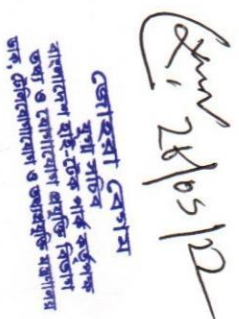 ২৮/০৬/২২
জোহরা বেগম
যুগ্ম সচিব
বাংলাদেশ হাই-টেক পার্ক কর্তৃপক্ষ
তথ্য ও যোগাযোগ প্রযুক্তি বিভাগ
ডাক, টেলিযোগাযোগ ও তথ্যপ্রযুক্তি মন্ত্রণালয়